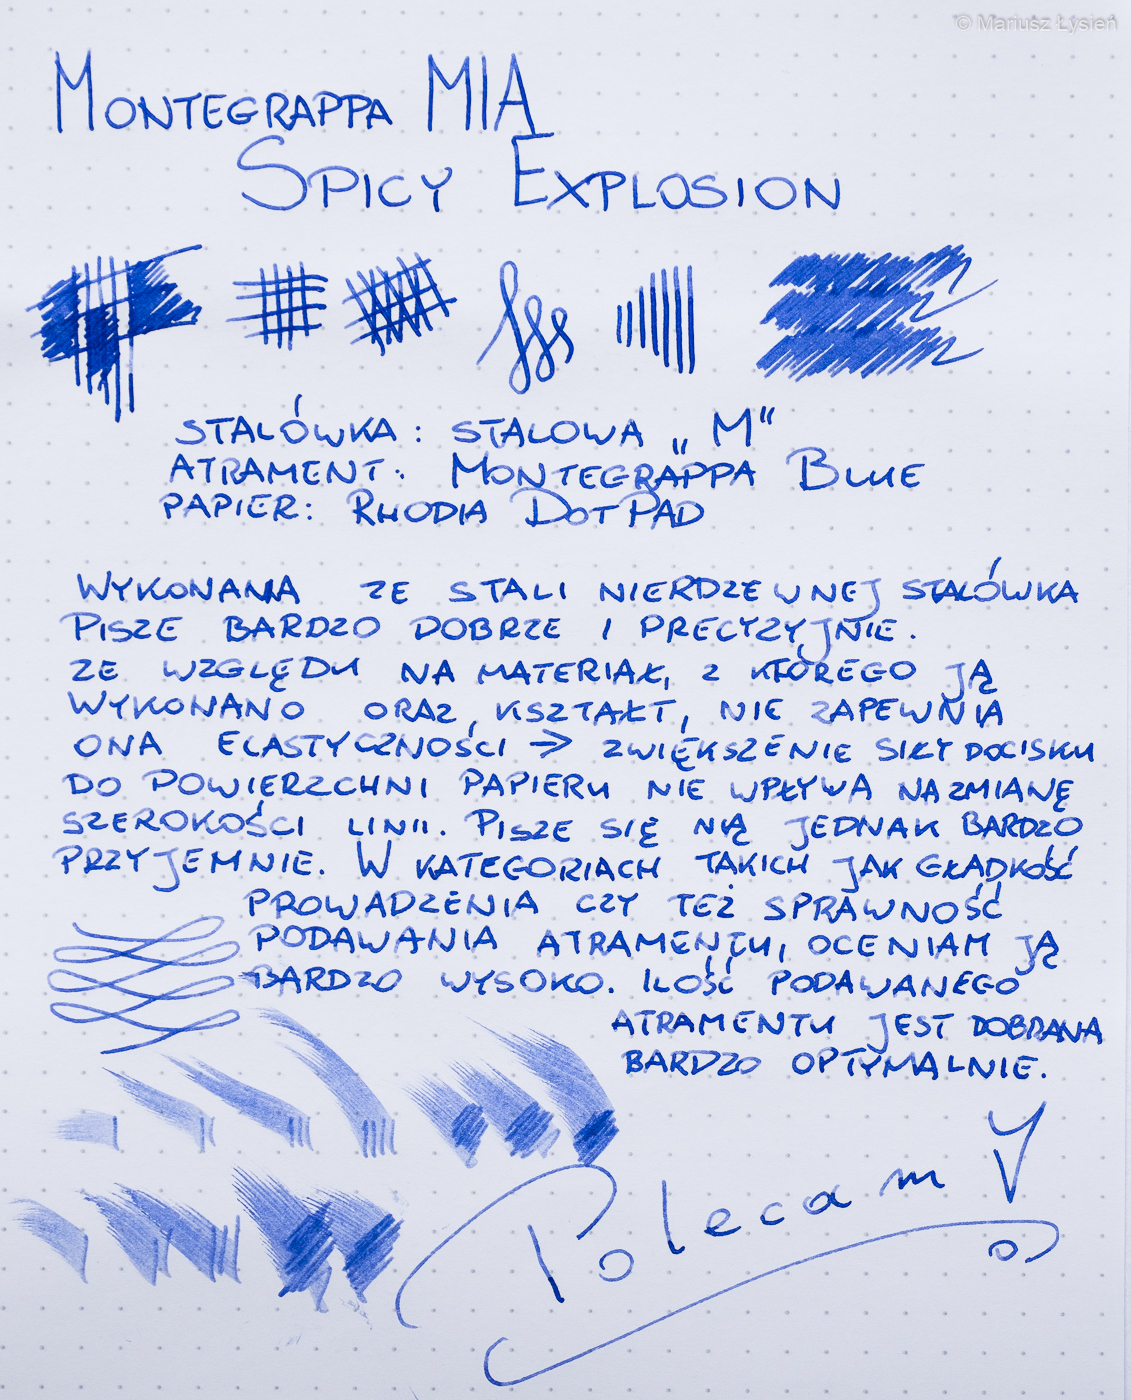 © Mariusz Łysień
MONTEGRAPPA MIA
SPICY EXPLOSION
STALÓWKA: STALOWA „M“
ATRAMENT: MONTEGRAPPA BLUE
PAPIER: RHODIA DOTPAD
WYKONANA ZE STALI NIERDZEWNEJ STALÓWKA
PISZE BARDZO DOBRZE I PRECYZYJNIE.
ZE WZGLĘDU NA MATERIAŁ, Z KTÓREGO JĄ
WYKONANO ORAZ, KSZTAŁT, NIE ZAPEWNIA
ONA ELASTYCZNOŚCI => ZWIĘKSZENIE SIŁY DOCISKU
DO POWIERZCHNI PAPIERU NIE WPŁYWA NA ZMIANĘ
SZEROKOŚCI LINII. PISZE SIĘ NIĄ JEDNAK BARDZO
PRZYJEMNIE. W KATEGORIACH TAKICH JAK GŁADKOŚĆ
PROWADZENIA CZY TEŻ SPRAWNOŚĆ
PODAWANIA ATRAMENTU, OCENIAM JĄ
BARDZO WYSOKO. ILOŚĆ PODAWANEGO
ATRAMENTU JEST DOBRANA
BARDZO OPTYMALNIE.
Polecam!